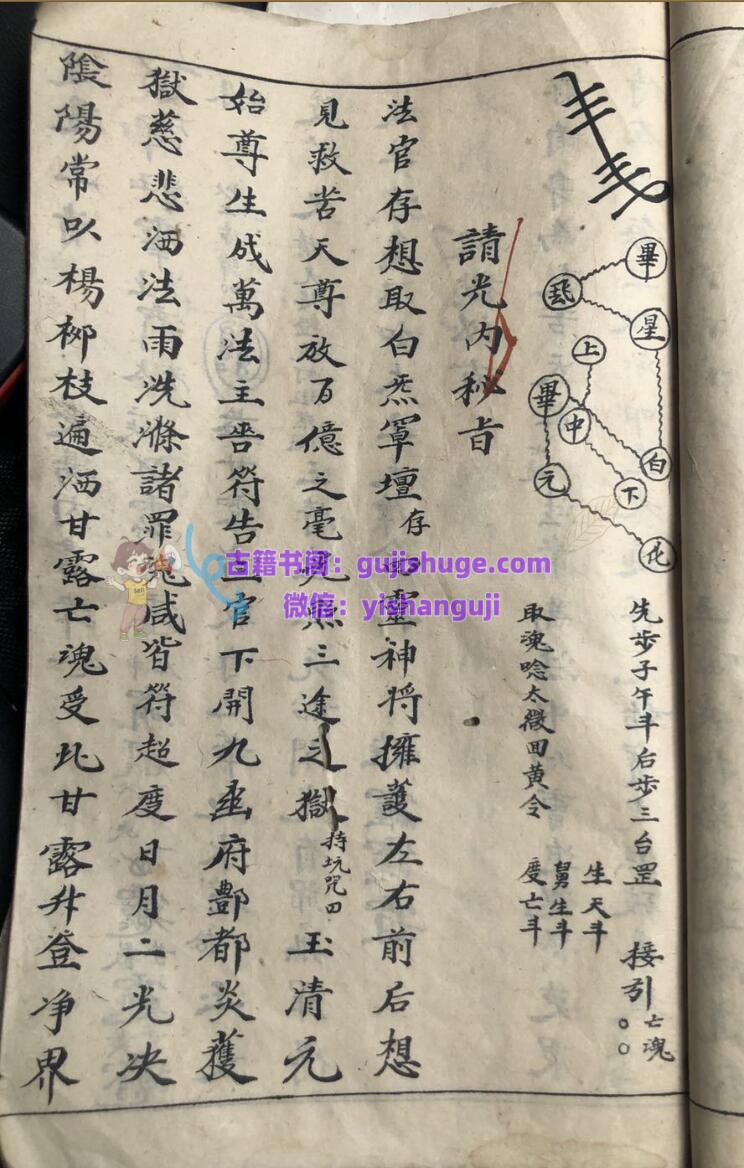 畢
飛
星
上
畢
中
白
元
下
先步子午斗后步三台罡 接引亡魂○○
生天斗
舅生斗
度亡斗
取魂唸太微回黄令
請光内秘旨
法官存想取白炁罩壇存 靈神将擁護左右前后想
見救苦天尊放百億之毫 三途之獄持坑咒四玉清元
始尊生成萬法主 符告 官下開九幽府酆都炎獲
獄慈悲洒法雨洗滌諸罪 咸皆符超度日月二光决
陰陽常以楊柳枝遍洒甘露亡魂受此甘露升登净界
古籍书阁：gujishuge.com
微信：yishanguji